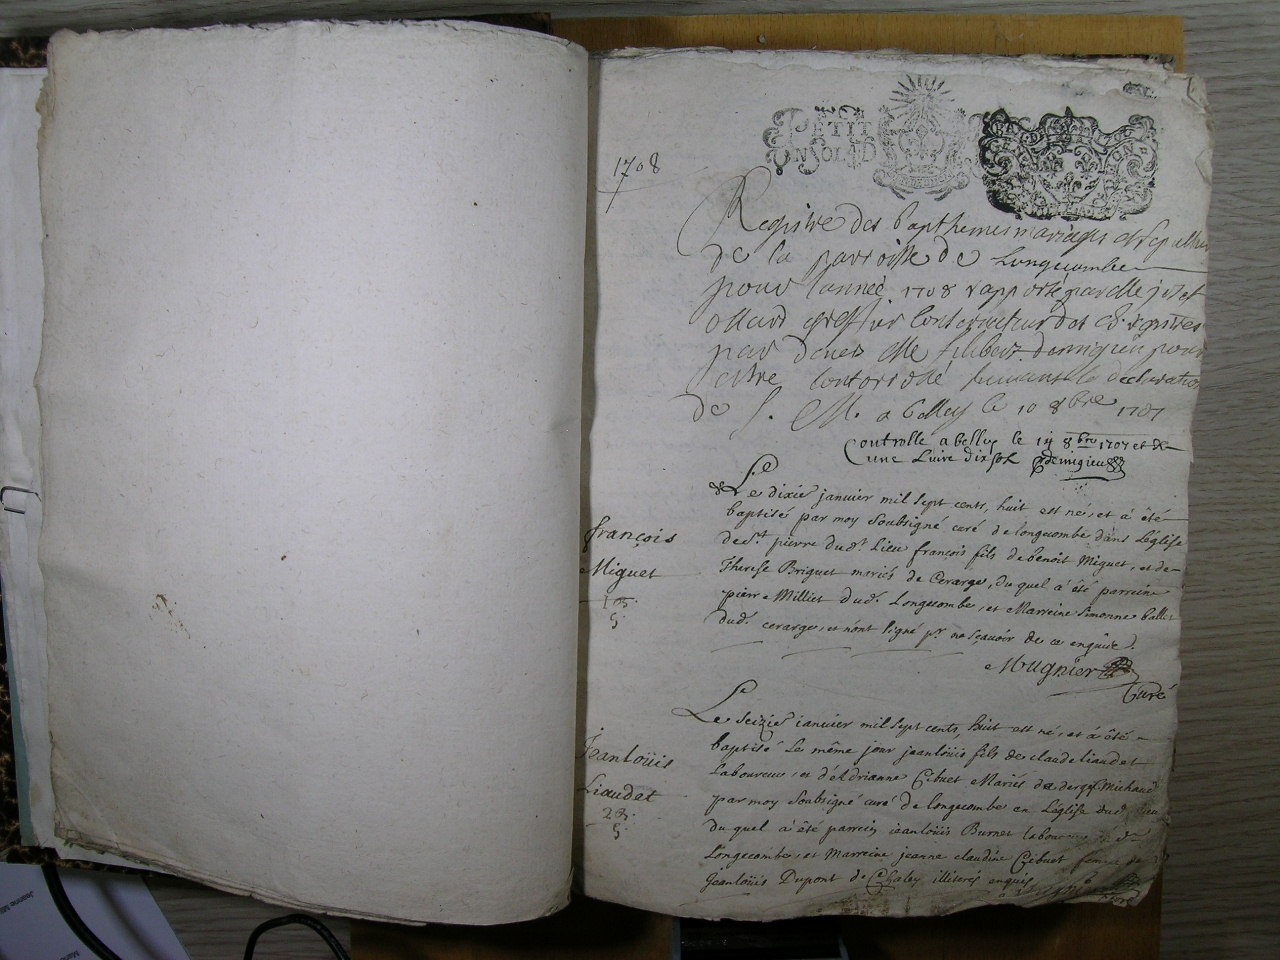 1708
PETIT
ON SOL D
GEN
Registre des bapthemes mariages et sepultur
de la parroisse de Longecombe
pour l'année 1708 rapporté par Me
ollard greffier Conservateur des registres
par devers Me filibert demigieu pour
estre Controrolé suivant la declaration
de S. M. a belley le 10 8bre 1707
Controllé a belley le 14 8bre 1707 et
une Livre dix sol demigieu
françois
Miguet
1 B.
Le dixie janvier mil sept cents, huit est né, et à été
baptisé par moy soubsigné curé de longecombe dans L'église
de St pierre dud. Lieu françois fils de benoit Miguet, et de
Therese Briguet mariés de Cerarge, du quel à été parrein
pierre Milliet dud. Longecombe, et Marreine Simonne ballet
dud. cerarge, et n'ont signé pr. ne sçavoir de ce enquis.
Mugnier
Curé
Jeanloüis
Liaudet
2 B.
Le seizie janvier mil sept cents, huit est né, et à été
baptisé le même jour jeanloüis fils de claude liaudet
Laboureur, et d'Adrianne Cibuet Mariés de Michaud
par moy soubsigné curé de longecombe en L'église dud. lieu
du quel à été parrein jeanloüis Burnet laboureur de
Longecombe, et Marreine jeanne claudine Cibuet femme de
Jeanloüis Dupont de Chaley illiterés enquis
Curé